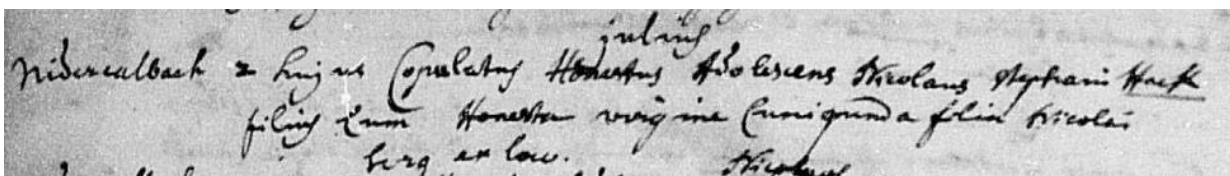 julius
Niderealbach 2 hujus Copulatus Honestus Adolescens Nicolaus Stephani Hack
filius Cum Honesta virgine Cunigunda filia Nicolai
berg ex low.
Nicolaus